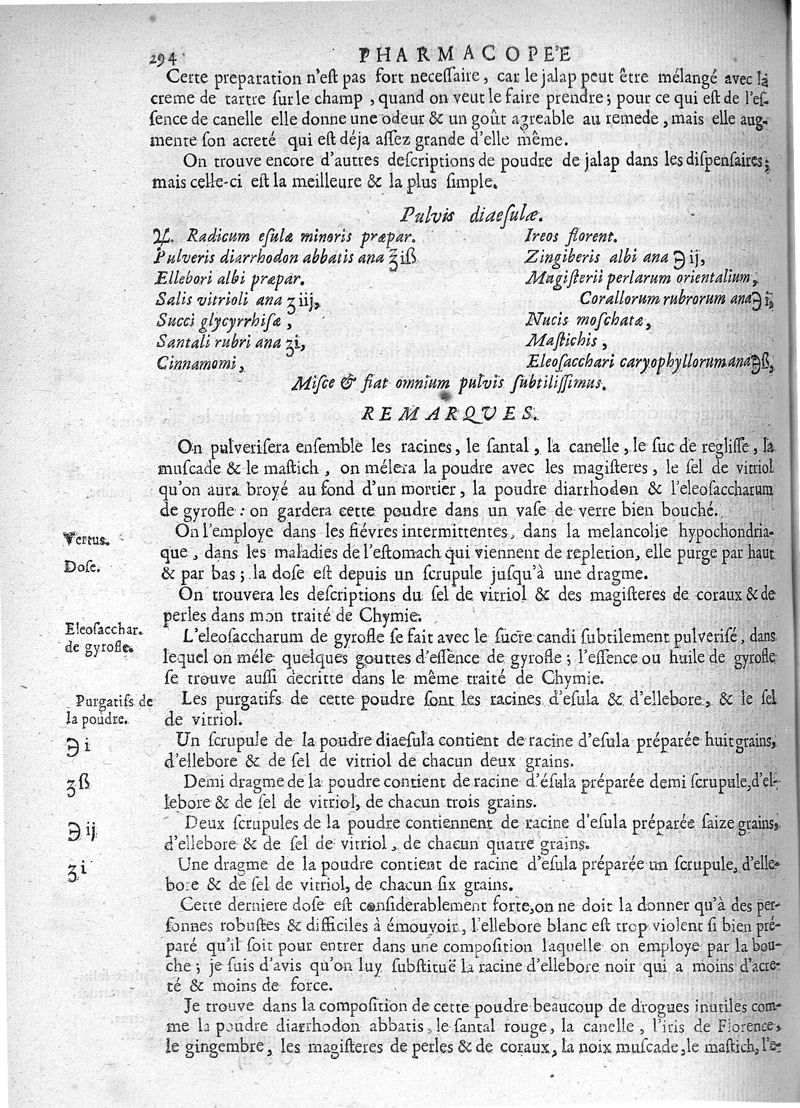 294 PHARMACOPE'E
Cette preparation n'eſt pas fort neceſſaire, car le jalap peut être mélangé avec la
creme de tartre ſur le champ, quand on veut le faire prendre; pour ce qui eſt de l'eſ-
ſence de canelle elle donne une odeur & un goût agreable au remede, mais elle aug-
mente ſon acreté qui eſt déja aſſez grande d'elle même.
On trouve encore d'autres deſcriptions de poudre de jalap dans les diſpenſaires;
mais celle-ci eſt la meilleure & la plus ſimple.
Pulvis diaeſulæ.
℞. Radicum eſulæ minoris præpar.
Pulveris diarrhodon abbatis ana ℥iß
Ellebori albi præpar.
Salis vitrioli ana ʒiij,
Succi glycyrrhiſæ,
Santali rubri ana ʒi,
Cinnamomi,
Ireos florent.
Zingiberis albi ana ℈ij,
Magiſterii perlarum orientalium,
Corallorum rubrorum ana ℈ij,
Nucis moſchatæ,
Maſtichis,
Eleoſacchari caryophyllorum ana ℈ß,
Miſce & fiat omnium pulvis ſubtiliſſimus.
REMARQVES.
On pulveriſera enſemble les racines, le ſantal, la canelle, le ſuc de regliſſe, la
muſcade & le maſtich, on mélera la poudre avec les magiſteres, le ſel de vitriol
qu'on aura broyé au fond d'un mortier, la poudre diarrhodon & l'eleoſaccharum
de gyrofle: on gardera cette poudre dans un vaſe de verre bien bouché.
Vertus.
On l'employe dans les fiévres intermittentes, dans la melancolie hypochondria-
que, dans les maladies de l'eſtomach qui viennent de repletion, elle purge par haut
Doſe.
& par bas; la doſe eſt depuis un ſcrupule juſqu'à une dragme.
On trouvera les deſcriptions du ſel de vitriol & des magiſteres de coraux & de
perles dans mon traité de Chymie.
Eleoſacchar.
de gyrofle.
L'eleoſaccharum de gyrofle ſe fait avec le ſucre candi ſubtilement pulveriſé, dans
lequel on méle quelques gouttes d'eſſence de gyrofle; l'eſſence ou huile de gyrofle
ſe trouve auſſi decritte dans le même traité de Chymie.
Purgatifs de
la poudre.
Les purgatifs de cette poudre ſont les racines d'eſula & d'ellebore, & le ſel
de vitriol.
℈i
Un ſcrupule de la poudre diaeſula contient de racine d'eſula préparée huit grains,
d'ellebore & de ſel de vitriol de chacun deux grains.
ʒß
Demi dragme de la poudre contient de racine d'éſula préparée demi ſcrupule, d'el-
lebore & de ſel de vitriol, de chacun trois grains.
℈ij
Deux ſcrupules de la poudre contiennent de racine d'eſula préparée ſaize grains,
d'ellebore & de ſel de vitriol, de chacun quatre grains.
ʒi
Une dragme de la poudre contient de racine d'eſula préparée un ſcrupule, d'elle-
bore & de ſel de vitriol, de chacun ſix grains.
Cette derniere doſe eſt conſiderablement forte, on ne doit la donner qu'à des per-
ſonnes robuſtes & difficiles à émouvoir, l'ellebore blanc eſt trop violent ſi bien pré-
paré qu'il ſoit pour entrer dans une compoſition laquelle on employe par la bou-
che; je ſuis d'avis qu'on luy ſubſtituë la racine d'ellebore noir qui a moins d'acre-
té & moins de force.
Je trouve dans la compoſition de cette poudre beaucoup de drogues inutiles com-
me la poudre diarrhodon abbatis, le ſantal rouge, la canelle, l'iris de Florence,
le gingembre, les magiſteres de perles & de coraux, la noix muſcade, le maſtich, l'e-